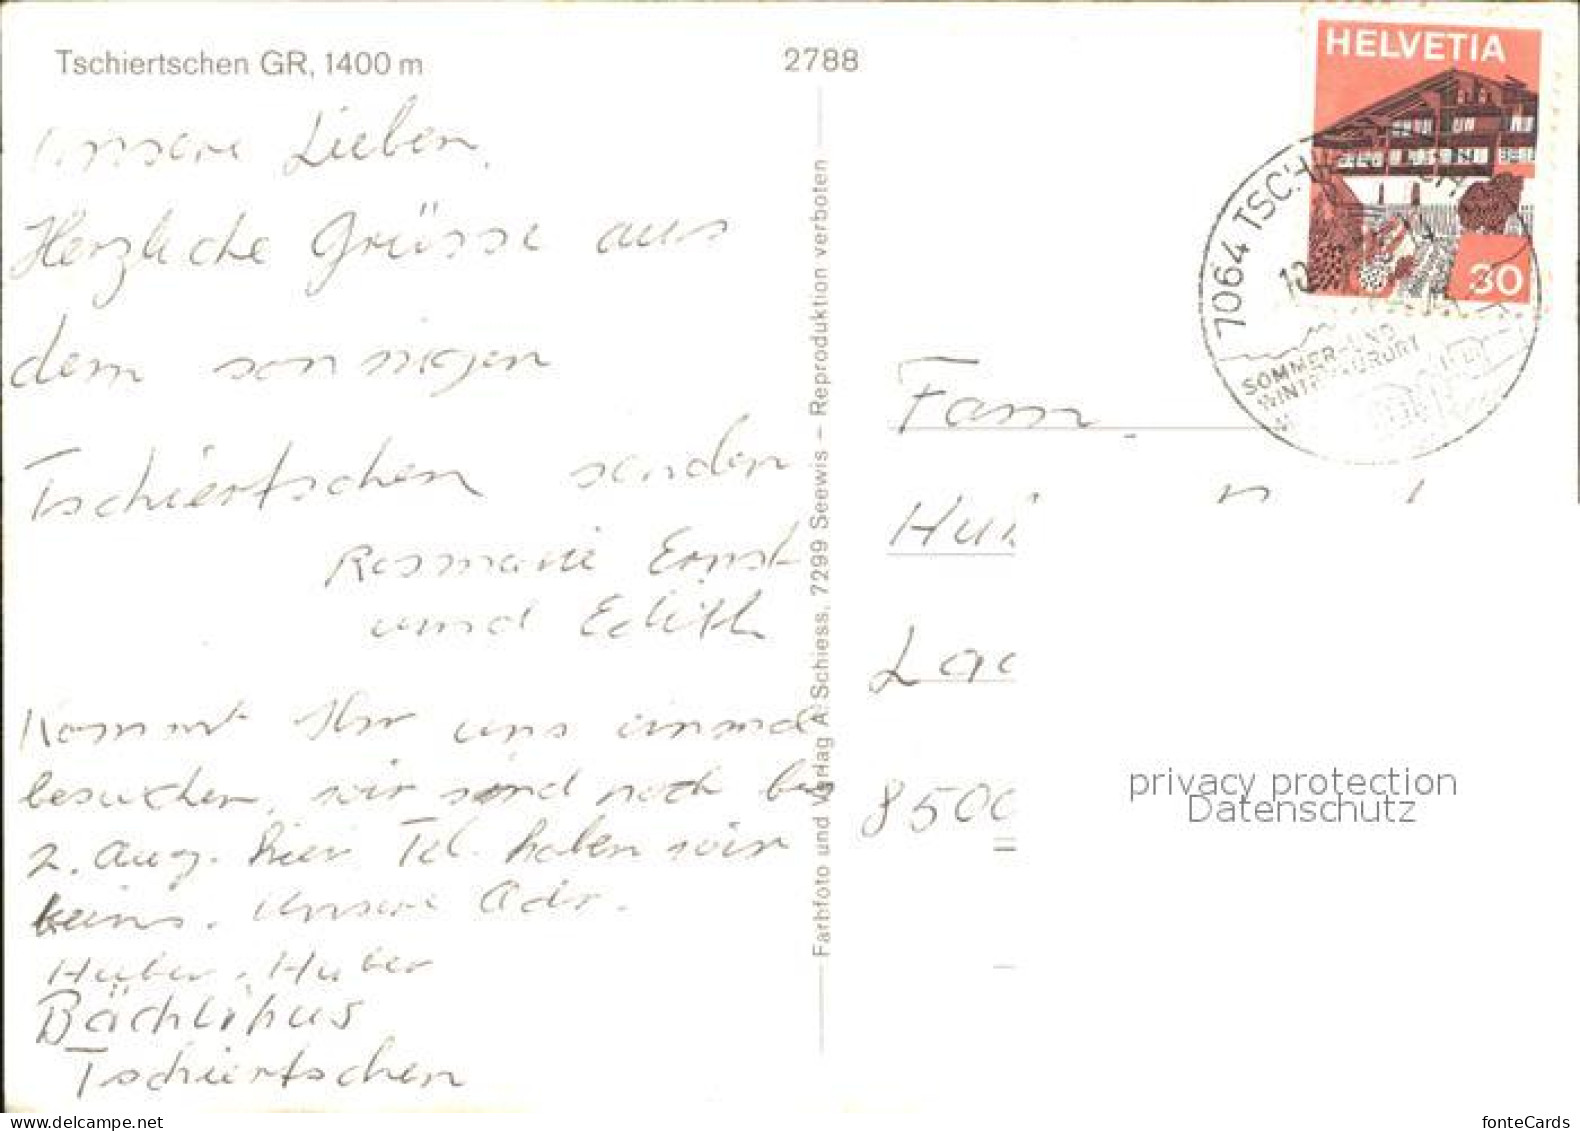 Tschiertschen GR, 1400 m
2788
Unsere Lieben,
Herzliche Grüsse aus
dem sonnigen
Tschiertschen senden
Rosmarie Ernst
und Edith
Kommt Ihr uns einmal
besuchen, wir sind noch bis
2. Aug. hier Tel. haben wir
keins. Unsere Adr.
Huber, Huber
Bächlihus
Tschiertschen
Farbfoto und Verlag A. Schiess, 7299 Seewis – Reproduktion verboten
HELVETIA
30
7064
SOMMER-UND
Fam.
8500
privacy protection
Datenschutz
fonteCards